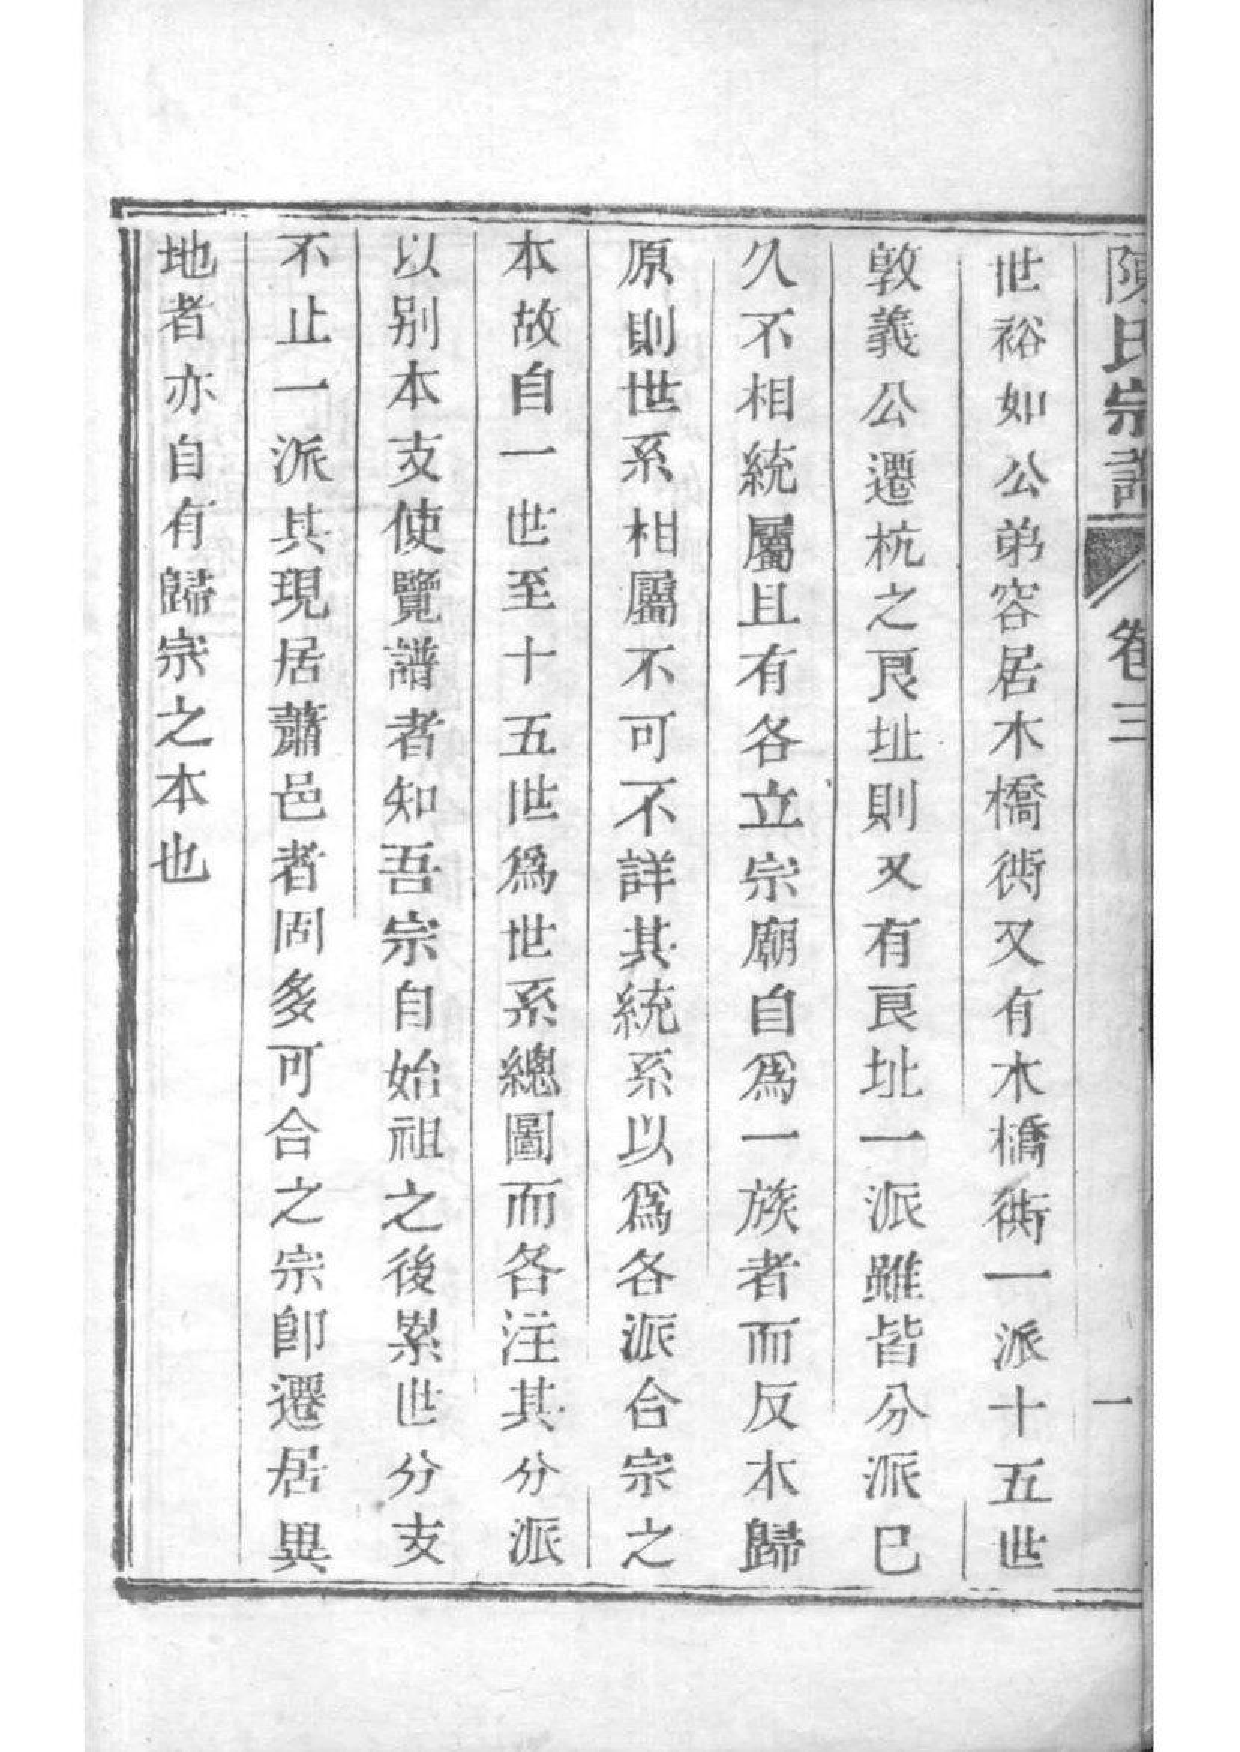 陳氏宗譜 卷三 一
世裕如公弟容居木橋衖又有木橋衖一派十五世
敦義公遷杭之艮址則又有艮址一派雖皆分派巳
久不相統屬且有各立宗廟自爲一族者而反本歸
原則世系相屬不可不詳其統系以爲各派合宗之
本故自一世至十五世爲世系總圖而各注其分派
以别本支使覽譜者知吾宗自始祖之後累世分支
不止一派其現居蕭邑者固多可合之宗卽遷居異
地者亦自有歸宗之本也